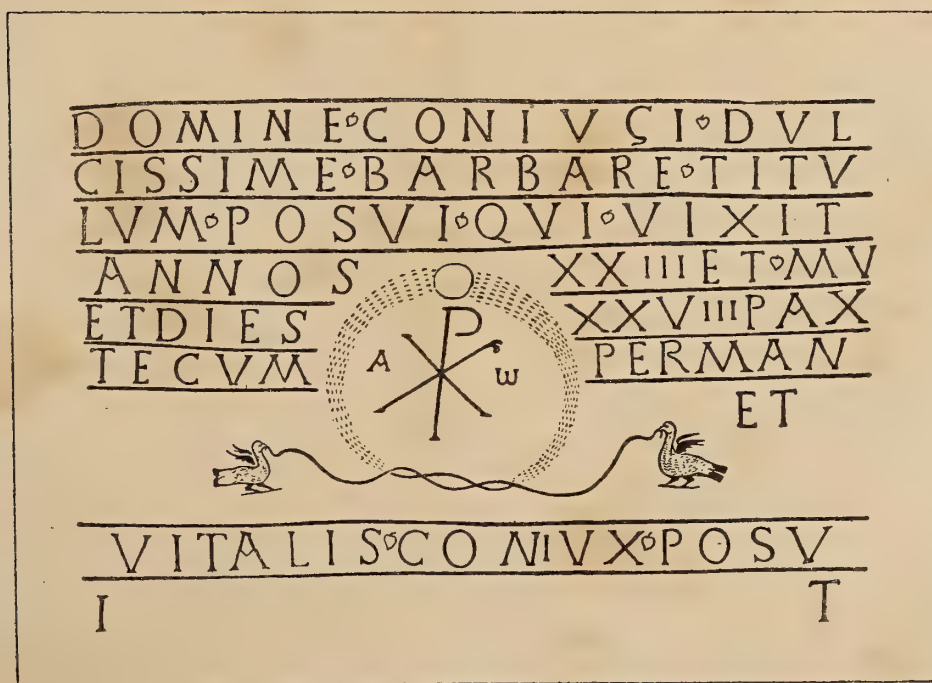 DOMINE CONIVGI DVL
CISSIME BARBARE TITV
LVM POSVI QVI VIXIT
ANNOS XXIIII ET MV
ET DIES XXVIII PAX
TECVM PERMAN
ET
A P ω
VITALIS CONIVX POSV
I T